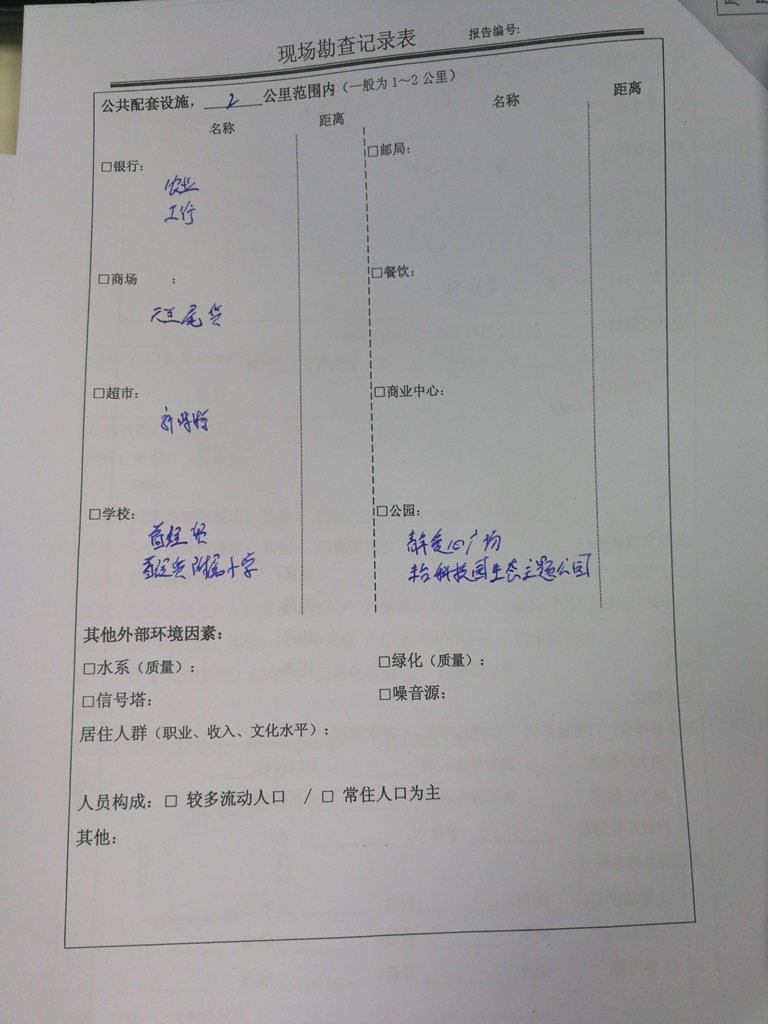 现场勘查记录表
报告编号:
公共配套设施，2公里范围内（一般为1～2公里）
名称 距离 名称 距离
□银行:
农业
工行
□邮局:
□商场 :
尾货
□餐饮:
□超市:
□商业中心:
□学校:
首经贸
首经贸附属小学
□公园:
广场
丰台科技园生态主题公园
其他外部环境因素:
□水系（质量）: □绿化（质量）:
□信号塔: □噪音源:
居住人群（职业、收入、文化水平）:
人员构成: □ 较多流动人口 / □ 常住人口为主
其他: